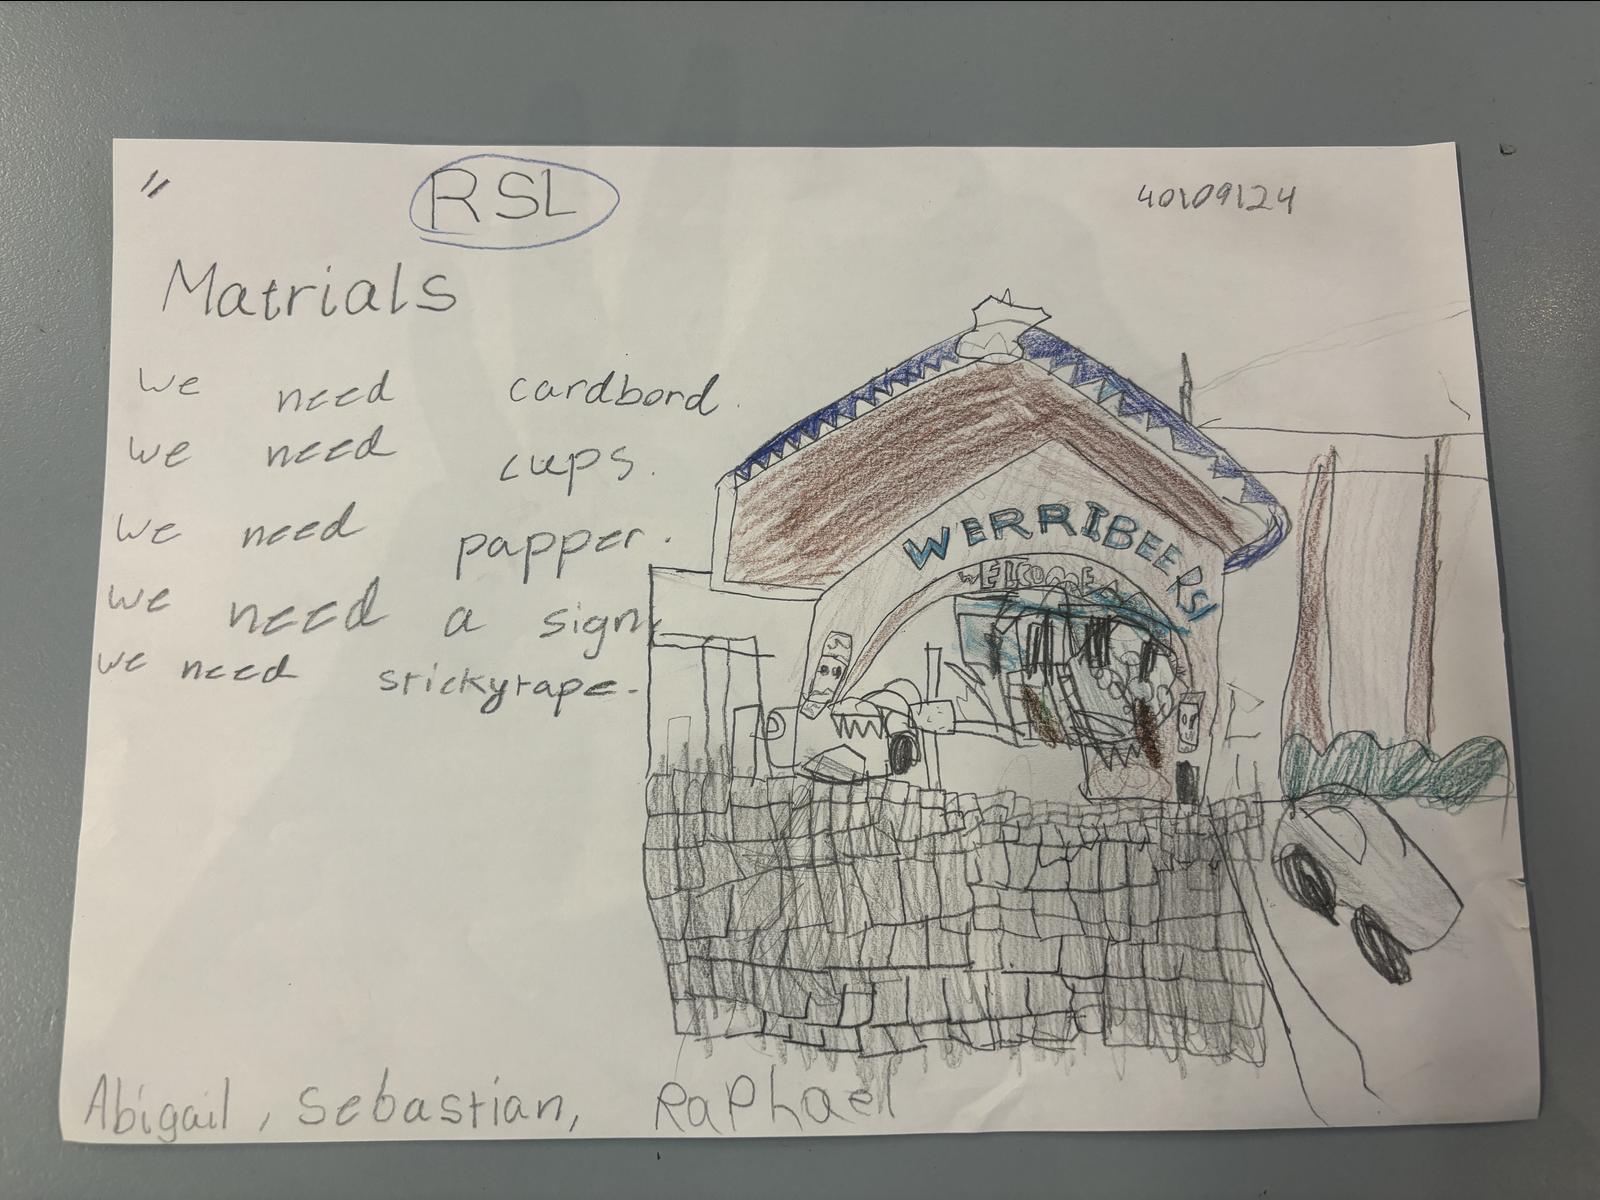 RSL
40\09\24
Matrials
we need cardbord.
we need cups.
we need papper.
we need a sign.
we need stickytape.
WERRIBEERSL
WELCOME
Abigail, Sebastian, Raphael